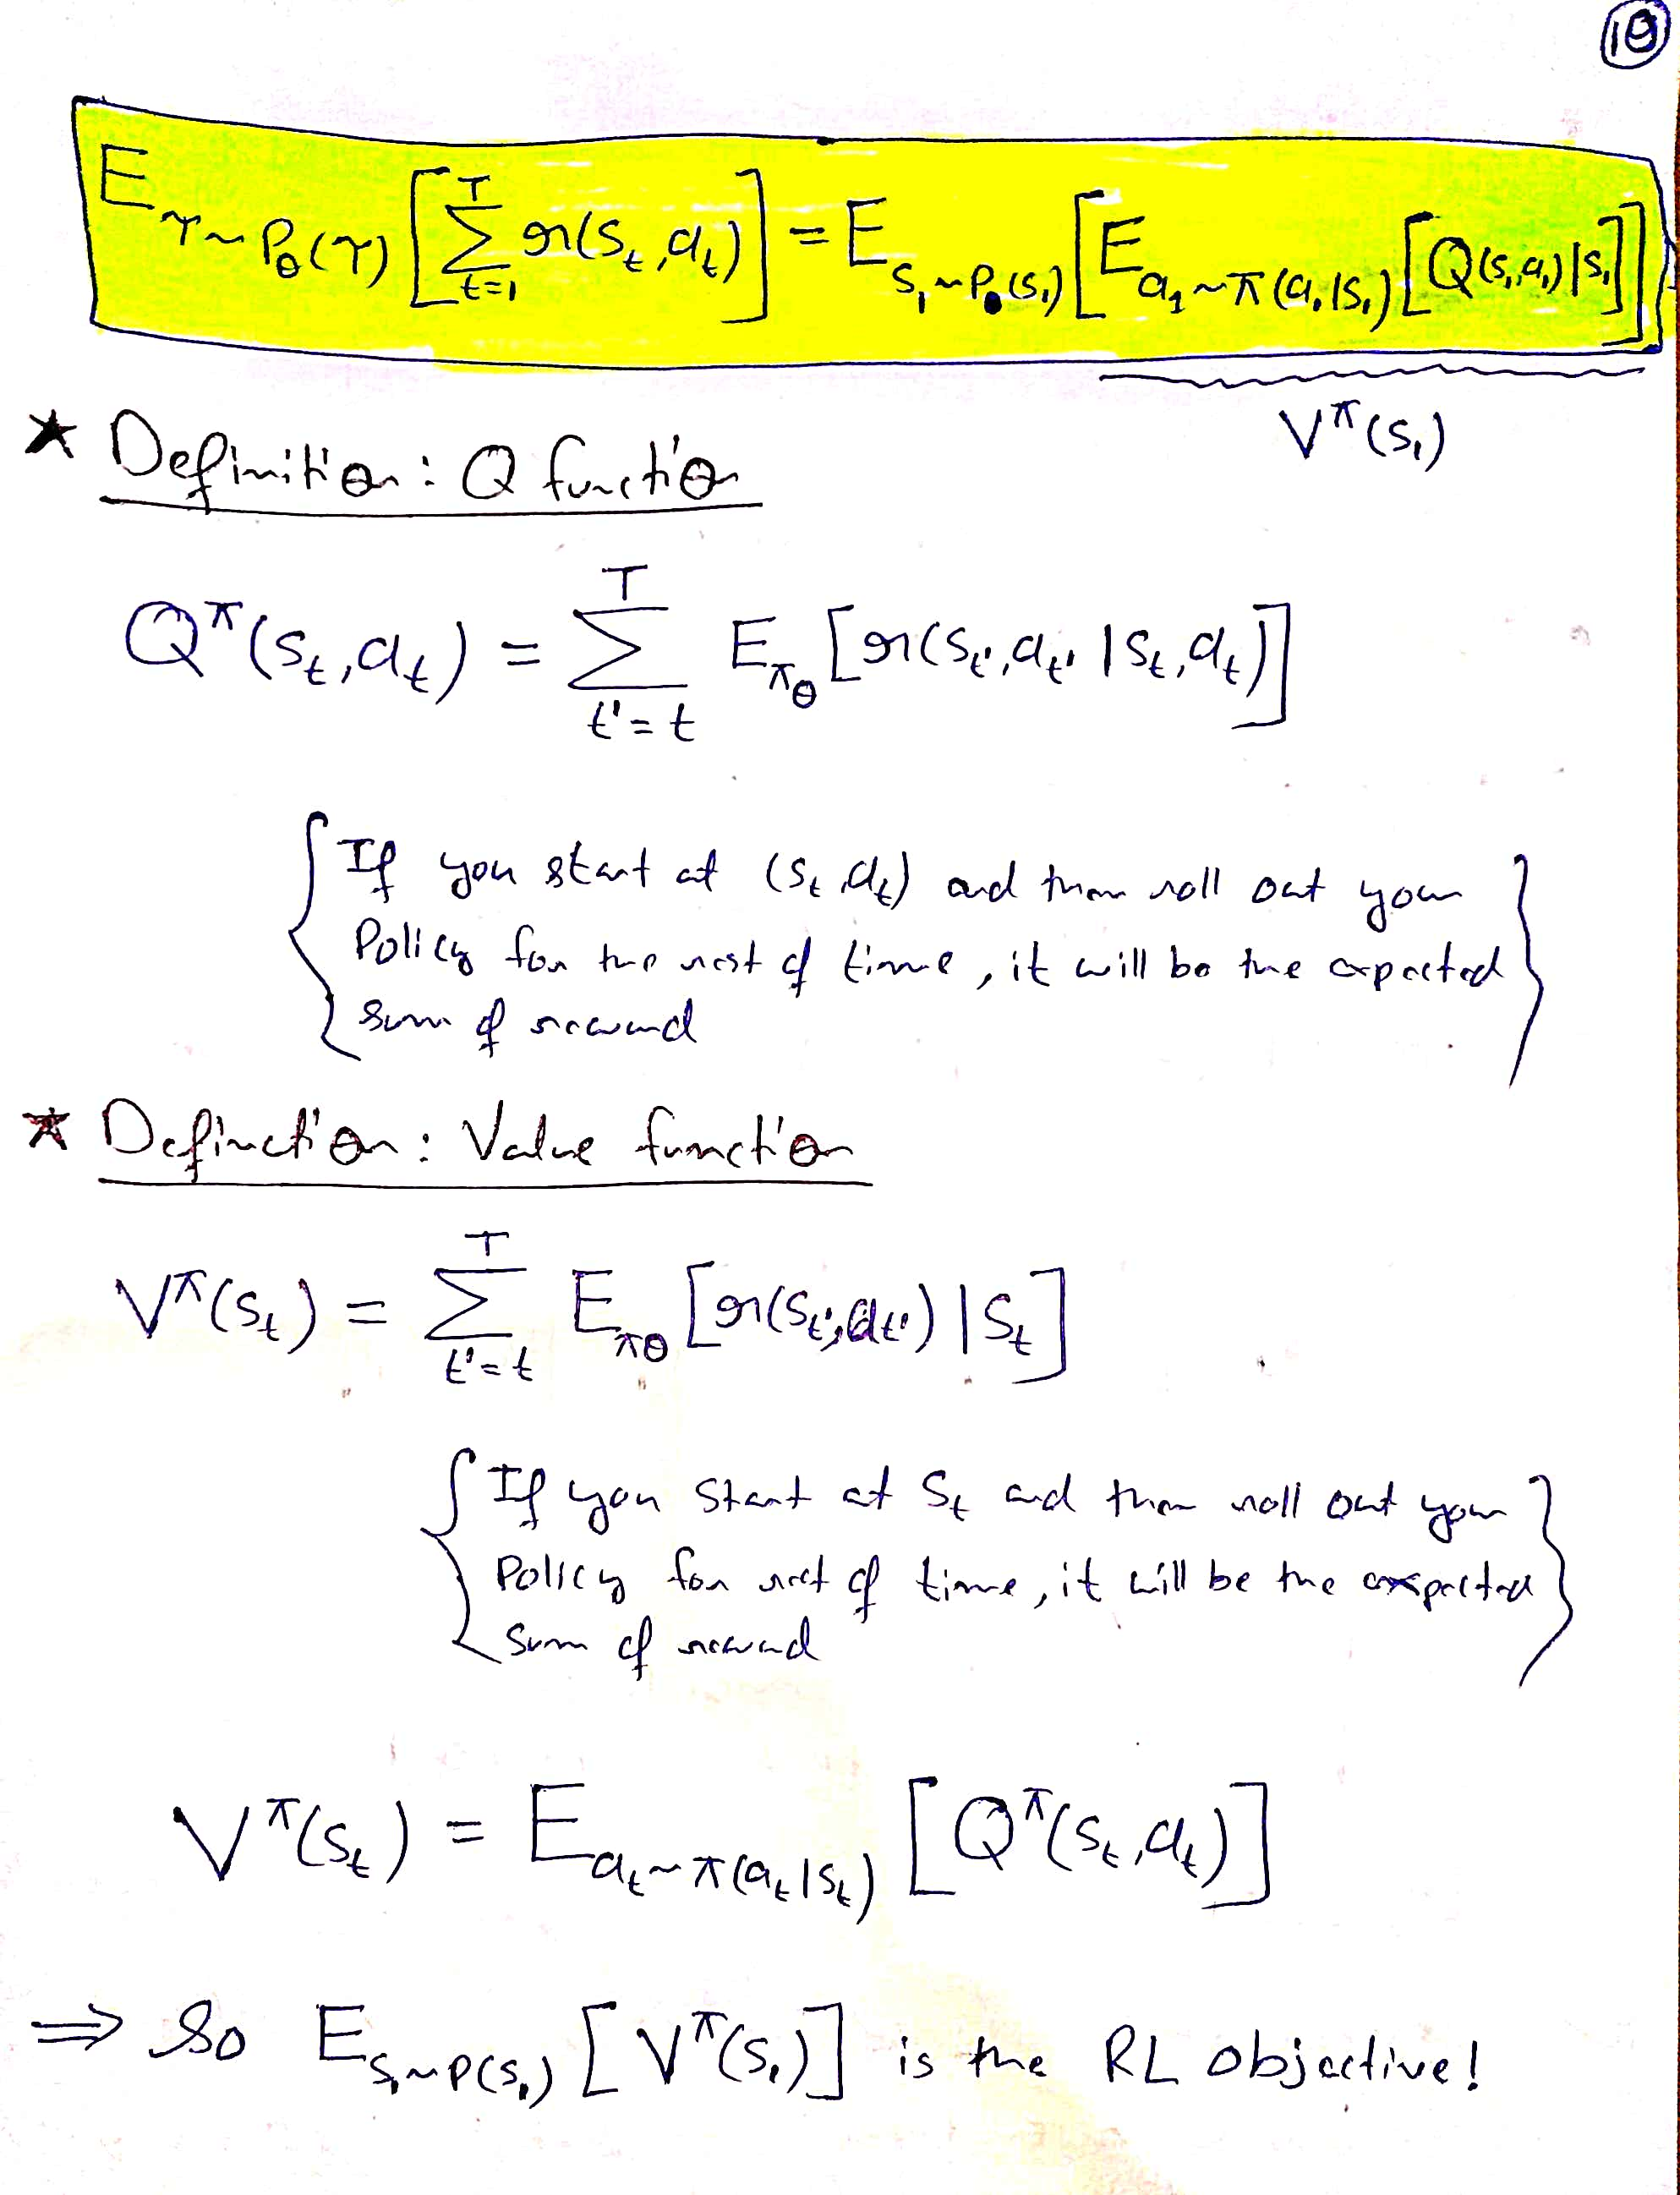 10
E_{τ∼P_θ(τ)} [ Σ_{t=1}^{T} r(s_t, a_t) ] = E_{s_1∼P(s_1)} [ E_{a_1∼π(a_1|s_1)} [ Q(s_1, a_1) | s_1 ] ]
V^π(s_1)
★ Definition: Q function
Q^π(s_t, a_t) = Σ_{t'=t}^{T} E_{π_θ} [ r(s_{t'}, a_{t'} | s_t, a_t) ]
{ If you start at (s_t, a_t) and then roll out your
Policy for the rest of time, it will be the expected
sum of reward }
★ Definction: Value function
V^π(s_t) = Σ_{t'=t}^{T} E_{πθ} [ r(s_{t'}, a_{t'}) | s_t ]
{ If you start at s_t and then roll out your
Policy for rest of time, it will be the expected
sum of reward }
V^π(s_t) = E_{a_t∼π(a_t|s_t)} [ Q^π(s_t, a_t) ]
⇒ So E_{s_1∼P(s_1)} [ V^π(s_1) ] is the RL objective!